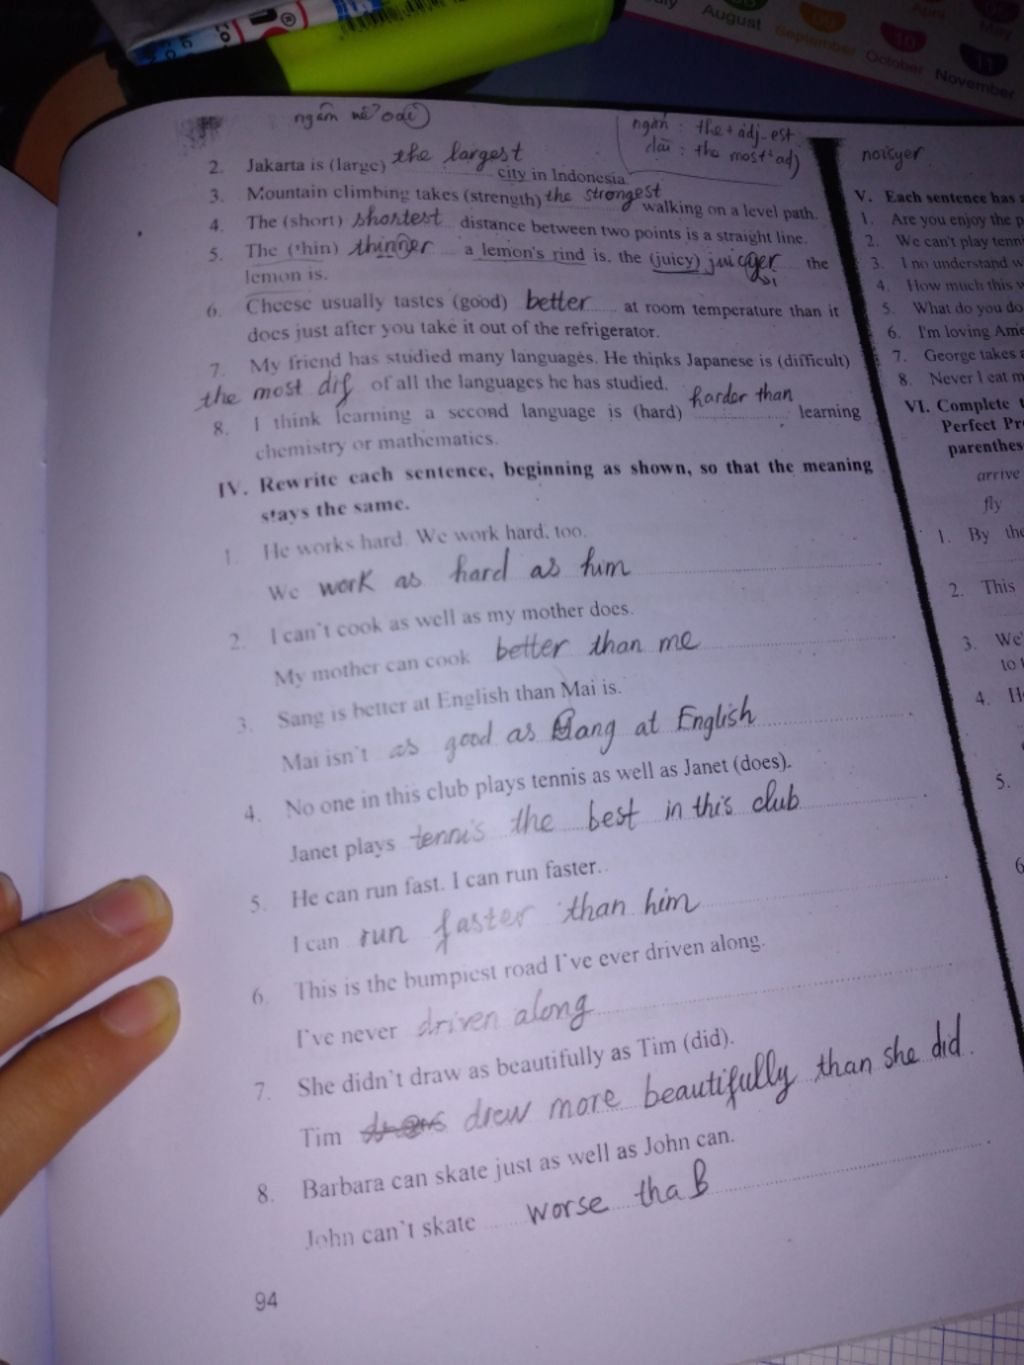 August
September
October
November
11
ngắn : the + adj-est
dài : the most + adj
noisyer
2. Jakarta is (large) the largest city in Indonesia.
3. Mountain climbing takes (strength) the strongest walking on a level path.
4. The (short) shortest distance between two points is a straight line.
5. The (thin) thinner a lemon's rind is, the (juicy) the
lemon is.
6. Cheese usually tastes (good) better at room temperature than it
does just after you take it out of the refrigerator.
7. My friend has studied many languages. He thinks Japanese is (difficult)
the most dif of all the languages he has studied.
8. I think learning a second language is (hard) harder than learning
chemistry or mathematics.
IV. Rewrite each sentence, beginning as shown, so that the meaning
stays the same.
1. He works hard. We work hard, too.
We work as hard as him
2. I can't cook as well as my mother does.
My mother can cook better than me
3. Sang is better at English than Mai is.
Mai isn't as good as Sang at English
4. No one in this club plays tennis as well as Janet (does).
Janet plays tennis the best in this club
5. He can run fast. I can run faster.
I can run faster than him
6. This is the bumpiest road I've ever driven along.
I've never driven along
7. She didn't draw as beautifully as Tim (did).
Tim drew more beautifully than she did.
8. Barbara can skate just as well as John can.
John can't skate worse tha B
94
V. Each sentence has
1. Are you enjoy the
2. We can't play
3. I no understand
4. How much this
5. What do you do
6. I'm loving
7. George takes
8. Never I eat
VI. Complete
Perfect
arrive
fly
1. By
2. This
3. We'
to
4.
5.
6